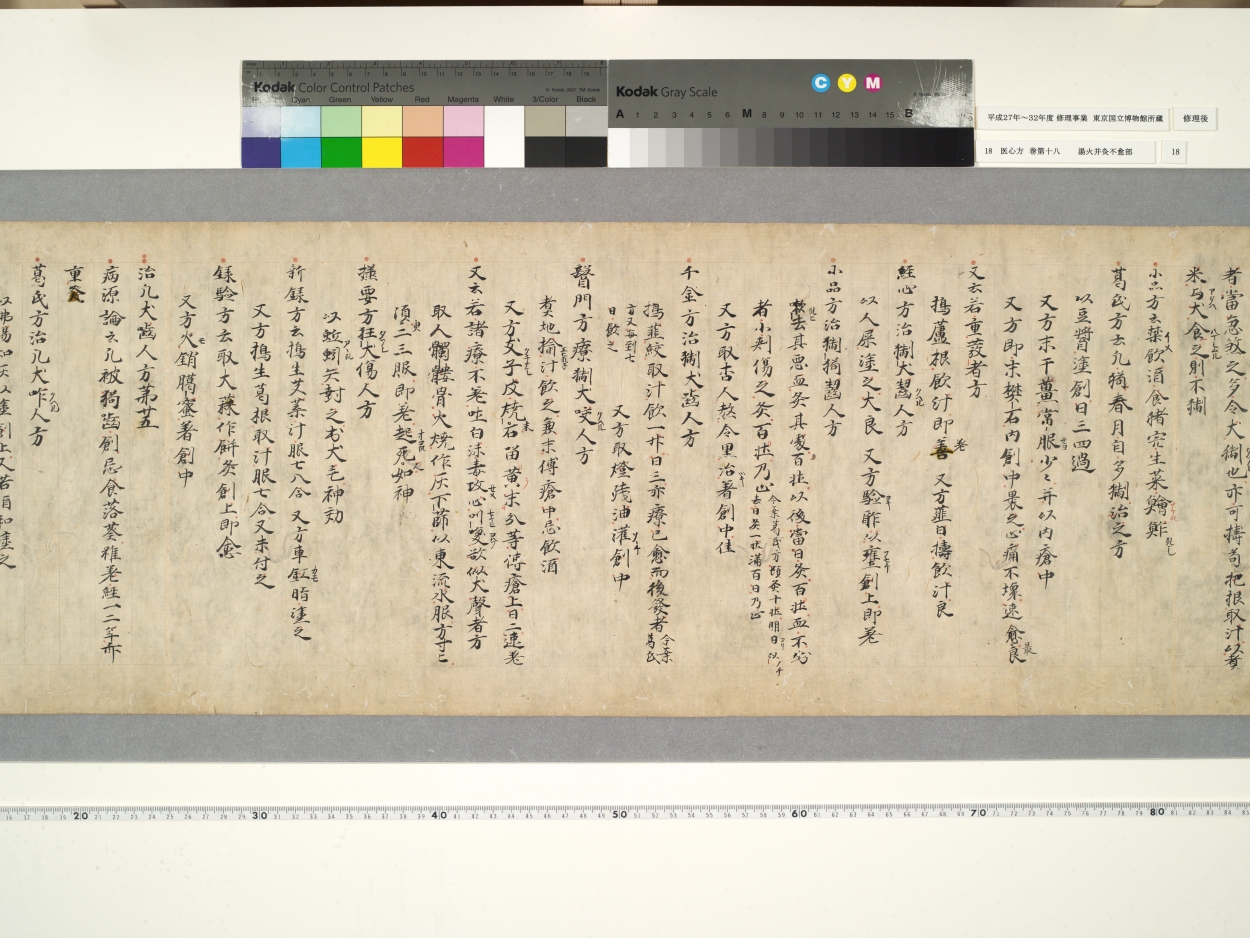 Kodak Color Control Patches
Cyan Green Yellow Red Magenta White 3/Color Black
Kodak Gray Scale
C Y M
A 1 2 3 4 5 6 M 8 9 10 11 12 13 14 15 B
平成27年～32年度 修理事業 東京国立博物館所蔵
修理後
18 医心方 巻第十八 湯火并灸不愈部
18
者當急救之多令犬猘也亦可擣苟把根取汁以
米与犬食之則不猘
小品方云葉飲酒食猪完生菜鱠鮓
葛氏方云凡猘春月自多猘治之方
以豆醬塗創日三四過
又方末干薑常服少々并以内瘡中
又方即末礬石内創中裹之止痛不壊速愈良
又云若重發者方
擣蘆根飲汁即善 又方韮日擣飲汁良
經心方治猘犬齧人方
以人屎塗之大良 又方驗酢以壅創上即差
小品方治猘猗齧人方
去其悪血灸其處百壮以後當日灸百壮血不出
者小刺傷之灸百壮乃止
又方取古人熬令里治著創中佳
千金方治猘犬齒人方
擣韮絞取汁飲一升日三亦療已愈而後發者
方又毎到七
日飲之
又方取燈残油灌創中
醫門方療猘犬咬人方
煮地揄汁飲之兼末傅瘡中忌飲酒
又方女子皮燒石苗黄末分等傅瘡上日二速差
又云若諸療不差吐白沫毒攻心叫喚欲似犬聲者方
取人髑髏骨火燒作灰下篩以東流水服方寸匕
須二三服即差起死如神
撮要方狂犬傷人方
以蚯蚓矢封之出犬毛神効
新録方云擣生艾葉汁服七八合 又方車釭脂塗之
又方擣生葛根取汁服七合又末付之
録驗方云取大蒜作餅灸創上即愈
又方火銷臈蜜著創中
治凡犬齒人方第廿五
病源論云凡被狗齒創忌食落葵雖差經一二年亦
重發
葛氏方治凡犬咋人方